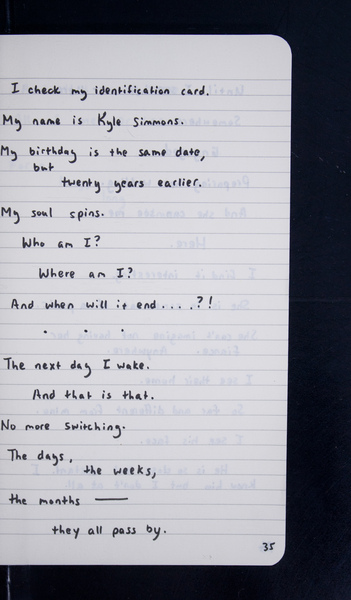 I check my identification card.
My name is Kyle Simmons.
My birthday is the same date,
but
twenty years earlier.
My soul spins.
Who am I?
Where am I?
And when will it end....?!
. . .
The next day I wake.
And that is that.
No more switching.
The days,
the weeks,
the months —
they all pass by.
35